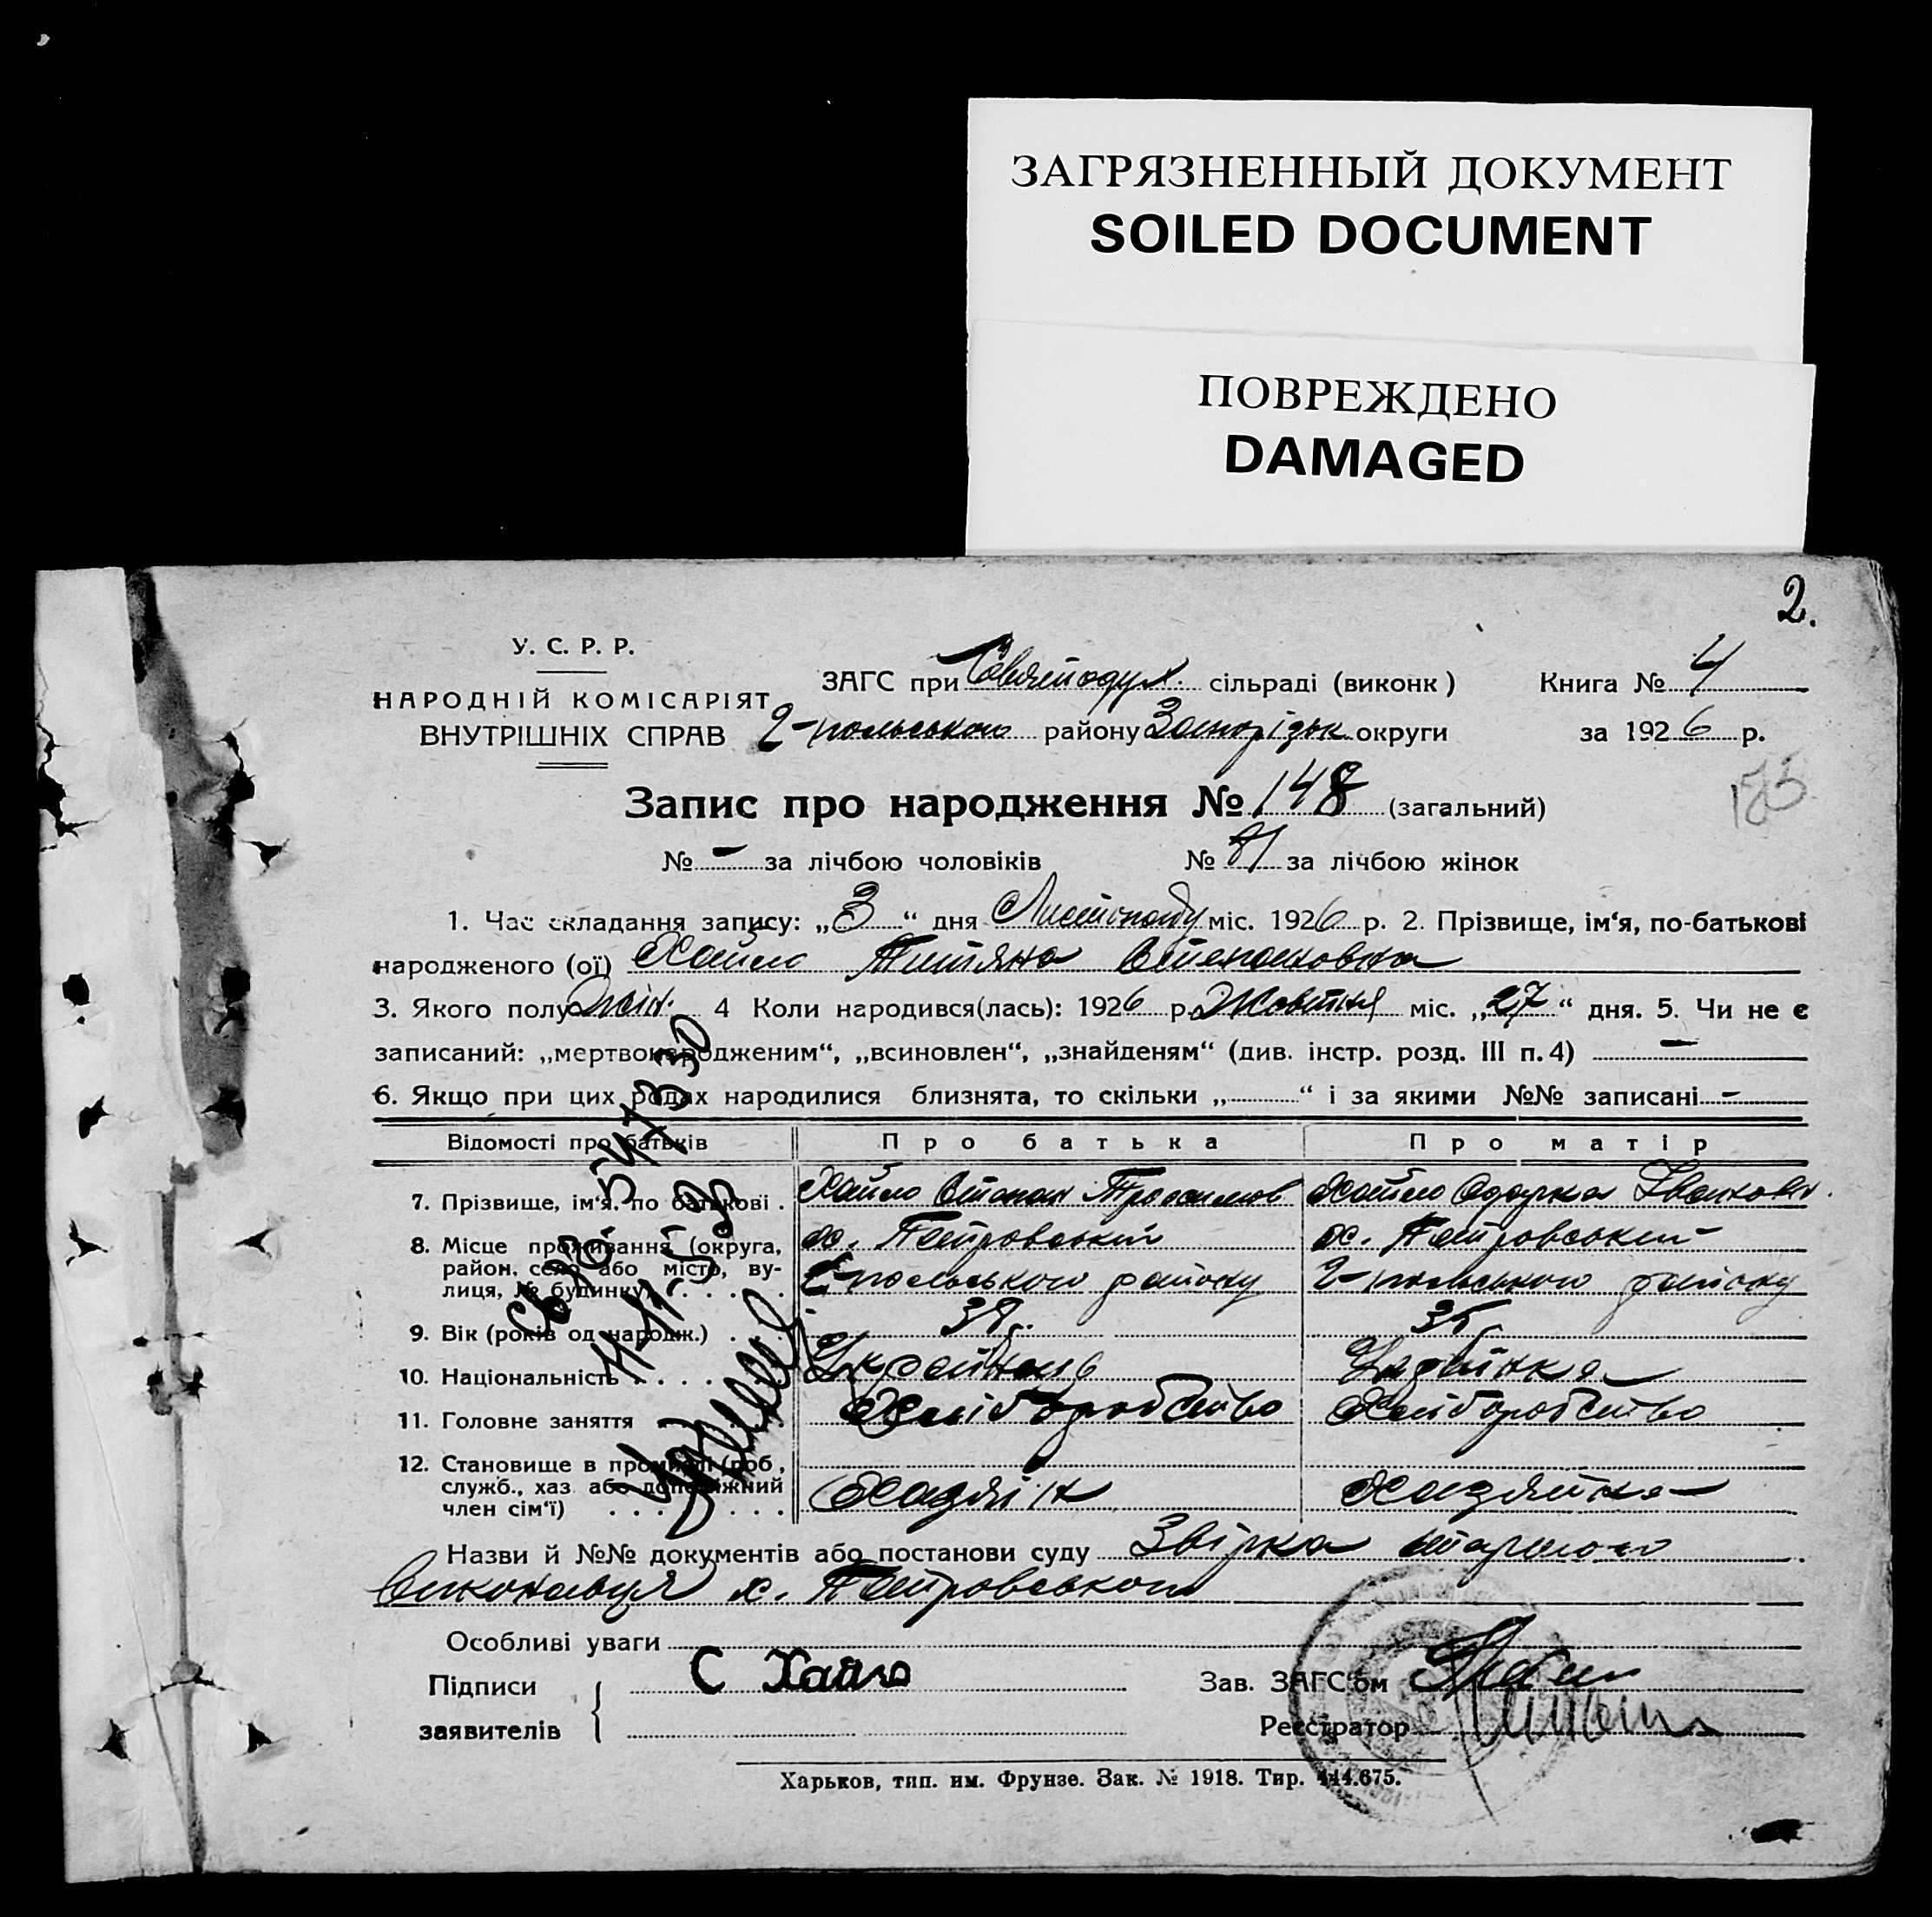 ЗАГРЯЗНЕННЫЙ ДОКУМЕНТ
SOILED DOCUMENT
ПОВРЕЖДЕНО
DAMAGED
2.
У. С. Р. Р.
НАРОДНІЙ КОМІСАРІЯТ
ВНУТРІШНІХ СПРАВ
ЗАГС при Святодух. сільраді (виконк) Книга № 4
2-польського району Запорізьк округи за 1926 р.
Запис про народження № 148 (загальний)
№ - за лічбою чоловіків № за лічбою жінок
1. Час складання запису: „3“ дня Листопаду міс. 1926 р. 2. Прізвище, ім‘я, по-батькові
народженого (ої) Хайло Титяна Степановна
3. Якого полу жін. 4 Коли народився(лась): 1926 р. Жовтня міс. „27“ дня. 5. Чи не є
записаний: „мертвонародженим“, „всиновлен“, „знайденям“ (див. інстр. розд. III п. 4) -
6. Якщо при цих родах народилися близнята, то скільки „ “ і за якими №№ записані -
Відомості про батьків Про батька Про матір
7. Прізвище, ім‘я, по батькові . Хайло Степан Хайло Одарка Іванов.
8. Місце проживання (округа, х. Петровський х. Петровський
район, село або місто, ву-
лиця, № будинку) . . . . . . 2-польського району 2-польського району
9. Вік (років од народж.) . . . 35
10. Національність . . . . . . .
11. Головне заняття . . . . . . Хліборобство Хліборобство
12. Становище в промислі (роб,
служб., хаз або допоміжний Хазяїн Хазяйка
член сім‘ї) . . . . . . .
Назви й №№ документів або постанови суду Звірка старшого
Виконавця х. Петровського
Особливі уваги
Підписи С Хайло Зав. ЗАГС‘ом
заявителів Реєстратор
Харьков, тип. им. Фрунзе. Зак. № 1918. Тир. 444.675.